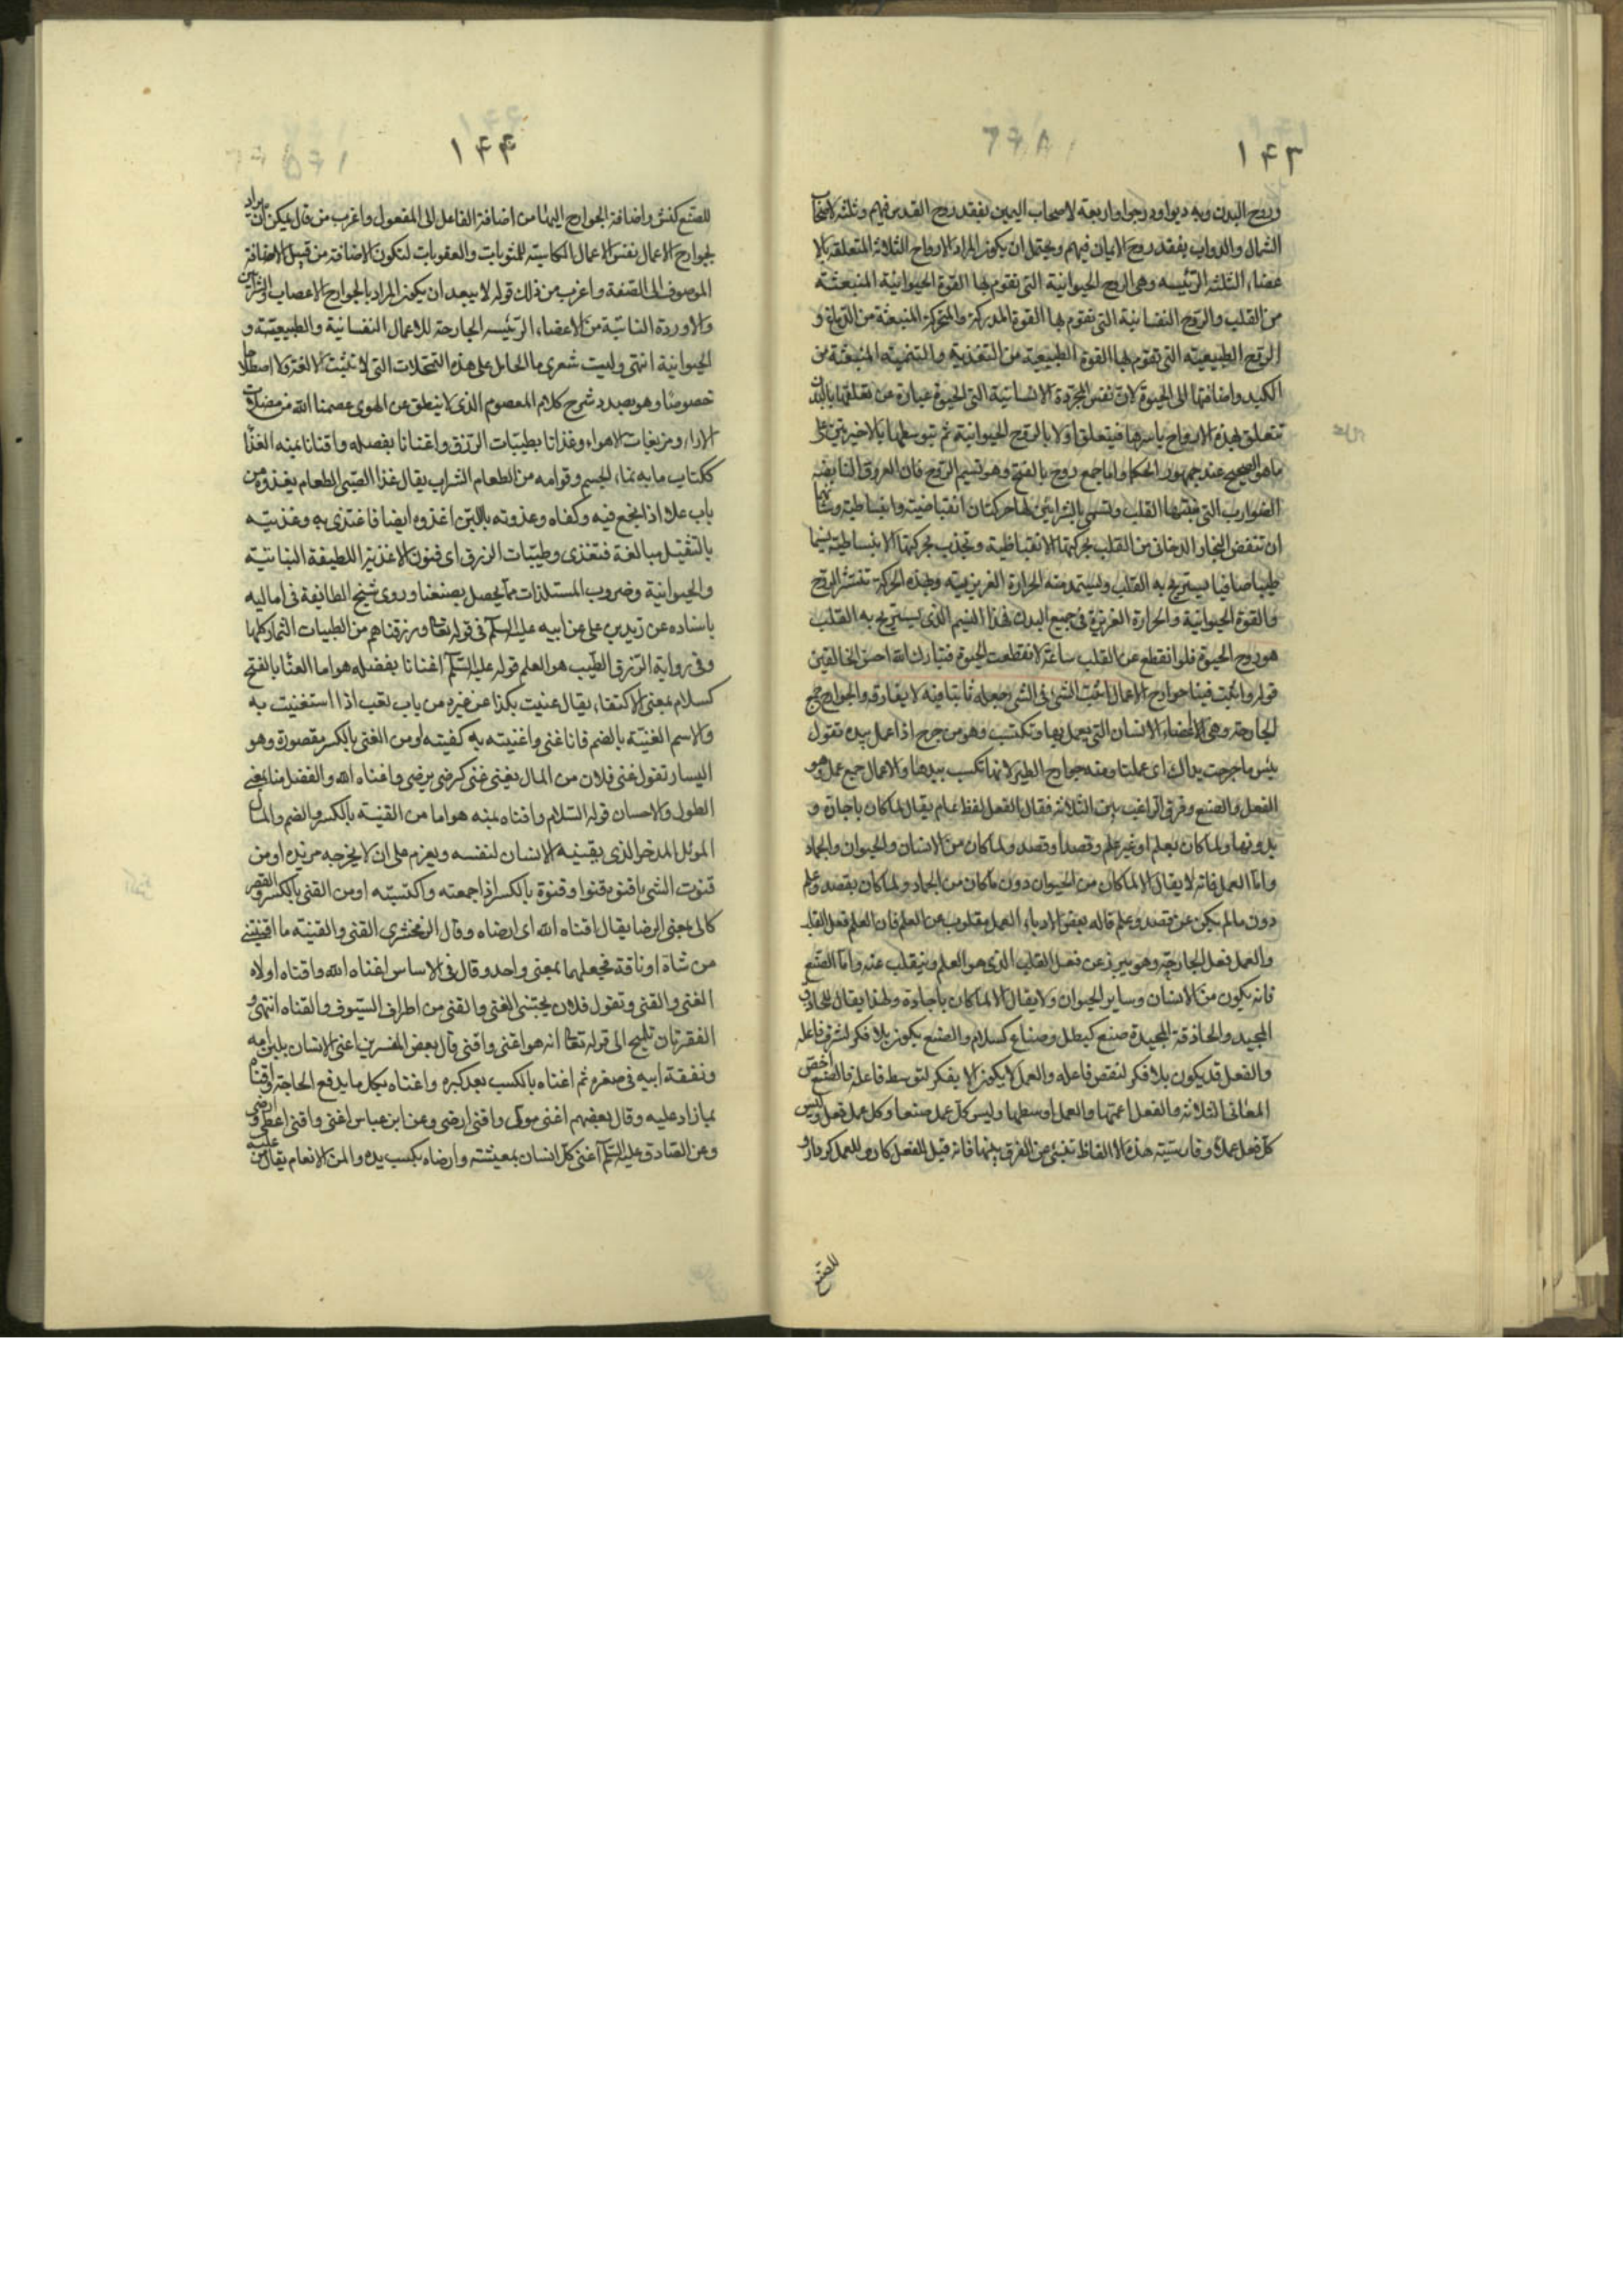 ١٤٣
وروح البدن وبه دبوا ودرجوا واربعة لاصحاب اليمين بفقد روح القدس فيهم وثلثه لاصحاب
الشمال والدواب بفقد روح الايمان فيهم ويحتمل ان يكون المراد الارواح الثلاثة المتعلقه بالا
عضاء الثلثه الرئيسه وهى الروح الحيوانية التى تقوم بها القوة الحيوانية المنبعثة
من القلب والروح النفسانية التى تقوم بها القوة المدركة والمحركة المنبعثة من الدماغ و
الروح الطبيعيه التى تقوم بها القوة الطبيعية من التغذية والتنمية المنبعثة من
الكبد واضافتها الى الحيوة لان نفس المجردة الانسانية التى الحيوة عبارة عن تعلقها بالبدن
تتعلق بهذه الارواح باسرها فيتعلق اولا بالروح الحيوانية ثم بتوسطها بالاخيرتين على
ماهو الصحيح عند جمهور الحكما واما جمع روح بالفتح وهو نسيم الروح فان العروق النابضه
الضوارب التى منبتها القلب وتسمى بالشرائين لها حركتان انقباضية وانبساطية وشانها
ان تنفض البخار الدخانى من القلب بحركتها الانقباظية وتجذب بحركتها الانبساطية نسيما
طيبا صافيا يستريح به القلب ويستمد منه الحرارة الغريزيه وبهذه الحركة تنتشر الروح
والقوة الحيوانية والحرارة الغريزة فى جميع البدن فهذا النسيم الذى يستريح به القلب
هو روح الحيوة فلو انقطع عن القلب ساعة لانقطعت الحيوة فتبارك الله احسن الخالقين
قوله واثبت فينا جوارح الاعمال اثبت الشى فى الشى جعله ثابتا فيه لا يفارقه والجوارح جمع
الجارحة وهى الاعضاء الانسان التى يعمل بها وتكتسب وهو من جرح اذا عمل بيده تقول
بئس ما جرحت يداك اى عملتا ومنه جوارح الطير لانها تكسب بيدها والاعمال جمع عمل وهو
الفعل والصنع وفرق الراغب بين الثلاثة فقال الفعل لفظ عام يقال لما كان باجادة و
بدونها ولما كان بعلم او غير علم وقصدا وقصد ولما كان من الانسان والحيوان والجماد
واما العمل فانه لا يقال الا لما كان من الحيوان دون ما كان من الجماد ولما كان بقصد وعلم
دون مالم يكن عن قصد وعلم قاله بعض الادباء العمل مقلوب عن العلم فان العلم فعل القلب
والعمل فعل الجارحة وهو يبرز عن فعل القلب الذى هو العلم وينقلب عنه واما الصنع
فانه يكون من الانسان وساير الحيوان ولا يقال الا لما كان باجادة ولهذا يقال للحاذق
المجيد والحاذقة المجيدة صنع كبطل وصناع كسلام والصنع يكون بلا فكر لشرف فاعله
والفعل قد يكون بلا فكر لنقص فاعله والعمل لا يكون الا بفكر لتوسط فاعله فالصنع اخص
المعانى الثلاثة والفعل اعمها والعمل اوسطها وليس كل عمل صنعا وكل عمل فعل وليس
كل فعل عملا وفارسيته هذه الالفاظ تنبئ عن الفرق بينها فانه قيل للفعل كار وللعمل كردار و
للصنع
١٤٤
للصنع كنش واضافة الجوارح اليها من اضافة الفاعل الى المفعول واغرب من قال يمكن ان يراد
بجوارح الاعمال نفس الاعمال الكاسبة للمثوبات والعقوبات لتكون الاضافة من قبيل الاضافة
الموصوف الى الصفة واغرب من ذلك قوله لا يبعد ان يكون المراد بالجوارح الاعصاب والشرائين
والاوردة النابتة من الاعضاء الرئيسه الجارحة للاعمال النفسانية والطبيعيّة و
الحيوانية انتهى وليت شعرى ما الحامل على هذه التمحلات التى لا تثبت لا لغة ولا اصطلاحا
خصوصا وهو بصدد شرح كلام المعصوم الذى لا ينطق عن الهوى عصمنا الله من مضلات
الاراء ومزيغات الاهواء وغذانا بطيبات الرزق واغنانا بفضله واقنانا بمنه الغذا
ككتاب ما به نماء الجسم وقوامه من الطعام الشراب يقال غذا الصبى الطعام يغذوه من
باب علا اذا نجع فيه وكفاه وغذوته باللبن اغذوه ايضا فاغتذى به وغذيته
بالتثقيل مبالغة فتغذى وطيبات الرزق اى فنون الاغذية اللطيفة النباتية
والحيوانية وضروب المستلذات مما يحصل بصنعنا وروى شيخ الطائفة فى اماليه
باسناده عن زيد بن على عن ابيه عليه السلم فى قوله تعالى ورزقناهم من الطيبات الثمار كلها
وفى رواية الرزق الطيب هو العلم قوله عليه السّلم اغنانا بفضله هو اما الغنا بالفتح
كسلام بمعنى الاكتفاء يقال غنيت بكذا عن غيره من باب تعب اذا استغنيت به
والاسم الغنية بالضم فانا غنى واغنيته به كفيته او من الغنى بالكسر مقصورة وهو
اليسار تقول غنى فلان من المال يغنى غنى كرضى يرضى واغناه الله والفضل هنا بمعنى
الطول والاحسان قوله السّلام واقناه بمنه هو اما من القنية بالكسر والضم والمال
الموثل المدخر الذى يقنيه الانسان لنفسه ويعزم على ان لا يخرجه من يده او من
قنوت الشى اقنوه قنوا وقنوة بالكسر اذا جمعته واكتسبته او من القنى بالكسر والقصر
كالى بمعنى الرضا يقال اقناه الله اى ارضاه وقال الزمخشرى القنى والقنية ما اقتنى
من شاة او ناقة فجعلهما بمعنى واحد وقال فى الاساس اغناه الله واقناه اولاه
الغنى والقنى وتقول فلان يجتنى الغنى والقنى من اطراف السيوف والقناه انتهى و
الفقرتان تلميح الى قوله تعالى انه هو اغنى واقنى قال بعض المفسرين اغنى الانسان بلبن امه
ونفقة ابيه فى صغره ثم اغناه بالكسب بعد كبره واغناه بكل ما يدفع الحاجة واقناه
بما زاد عليه وقال بعضهم اغنى مول واقنى ارضى وعن ابن عباس اغنى واقنى اعطى وارضى
وعن الصادق عليه السّلم اغنى كل انسان بمعيشته وارضاه بكسب يده والمن الانعام يقال من عليه